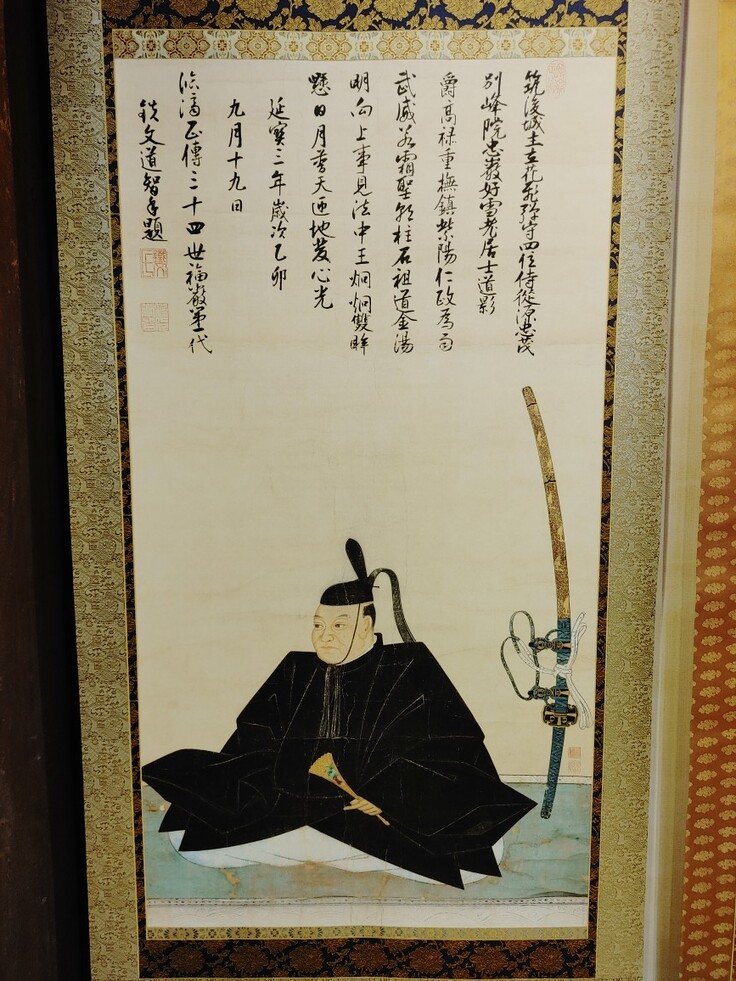 筑後城主立花飛弾守四位侍従源忠茂
別峰院忠巌好雪老居士道影
爵高禄重撫鎮紫陽仁政為雨
武威若霜聖朝柱石祖道金湯
明向上事見法中王炯炯雙眸
懸日月普天匝地發心光
延寳三年歳次乙卯
九月十九日
臨濟正傳三十四世福嚴第一代
鉄文道智手題